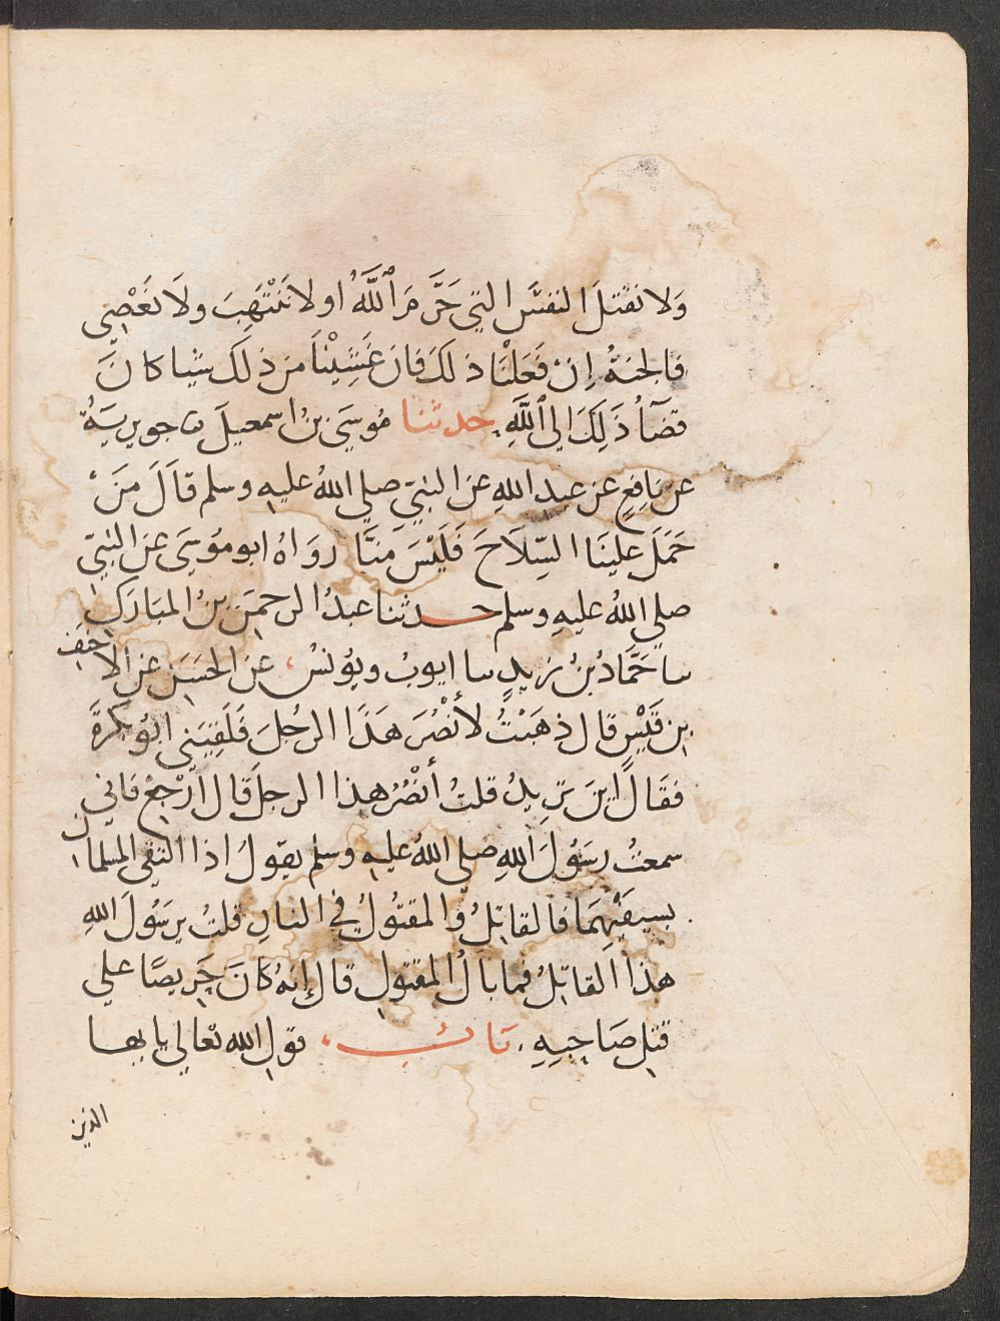 وَلا نقتلَ النفسَ التي حَرَّمَ اللَّهُ اولا نَنْتَهِبَ ولا نَعْصِي
فالجنةُ إنْ فَعَلْنَا ذلكَ فان غَشِيْنَا من ذلك شيا كانَ
قضآءُ ذَلِكَ الي اللَّهِ. حدثنا مُوسَي بنُ اسمعيلَ ثنا جويريَةُ
عن نافِعٍ عن عبدِ اللهِ عن النبيّ صلي اللهُ عليهِ وسلم قالَ مَنْ
حَمَلَ علينَا السِّلَاحَ فَلَيْسَ منَّا رواهُ ابو مُوسَي عن النبيّ
صلي اللهُ عليهِ وسلم حدثنا عبدُ الرحمن بنُ المبَارَك
سا حَمّادُ بنُ زيدٍ سا ايوبُ ويُونسُ، عن الحسَنِ عن الاحنَف
بن قَيْسٍ قال ذهَبْتُ لأنْصُرَ هَذَا الرجُلَ فَلَقِيَني ابُو بكرةَ
فقَالَ اينَ تريدُ قلتُ أنْصُرُ هذا الرجلَ قال ارْجِعْ فاني
سمعتُ رسُولَ اللهِ صلي اللهُ عليهِ وسلم يقولُ اذا التقي المسلمان
بسيفَيْهِمَا فالقاتِلُ والمقتُولُ في النارِ قلتُ يرسُولَ اللهِ
هذا القاتِلُ فما بالُ المقتولِ قال إنهُ كانَ حَرِيصًا علي
قتلِ صَاحِبِهِ. بَابُ، قول الله تعالي يايها
الذين